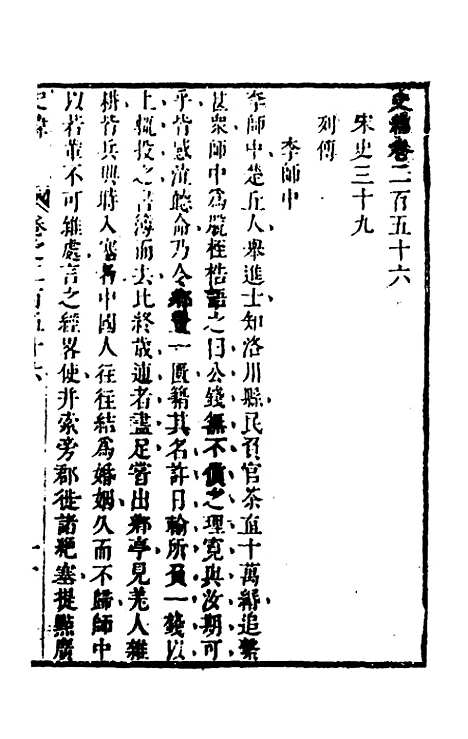 史緯卷二百五十六
宋史三十九
列傳
李師中
李師中楚丘人舉進士知洛川縣民負官茶直十萬緡追繫
甚衆師中為脫桎梏語之曰公錢無不償之理寬與汝期可
乎皆感泣聽命乃令鄉置一匱籍其名許日輸所負一錢以
上輒投之書簿而去比終歲逋者盡足嘗出鄉亭見羌人雜
耕皆兵興時入塞者中國人往往結為婚姻久而不歸師中
以若輩不可雜處言之經畧使并索旁郡徙諸絶塞提點廣
史緯
卷之二百五十六
一